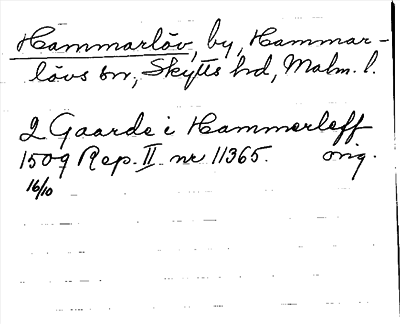 Hammarlöv, by, Hammar-
lövs sn, Skytts hd, Malm. l.
2 Gaarde i Hammerleff
1509 Rep. II. nr 11365. orig.
16/10